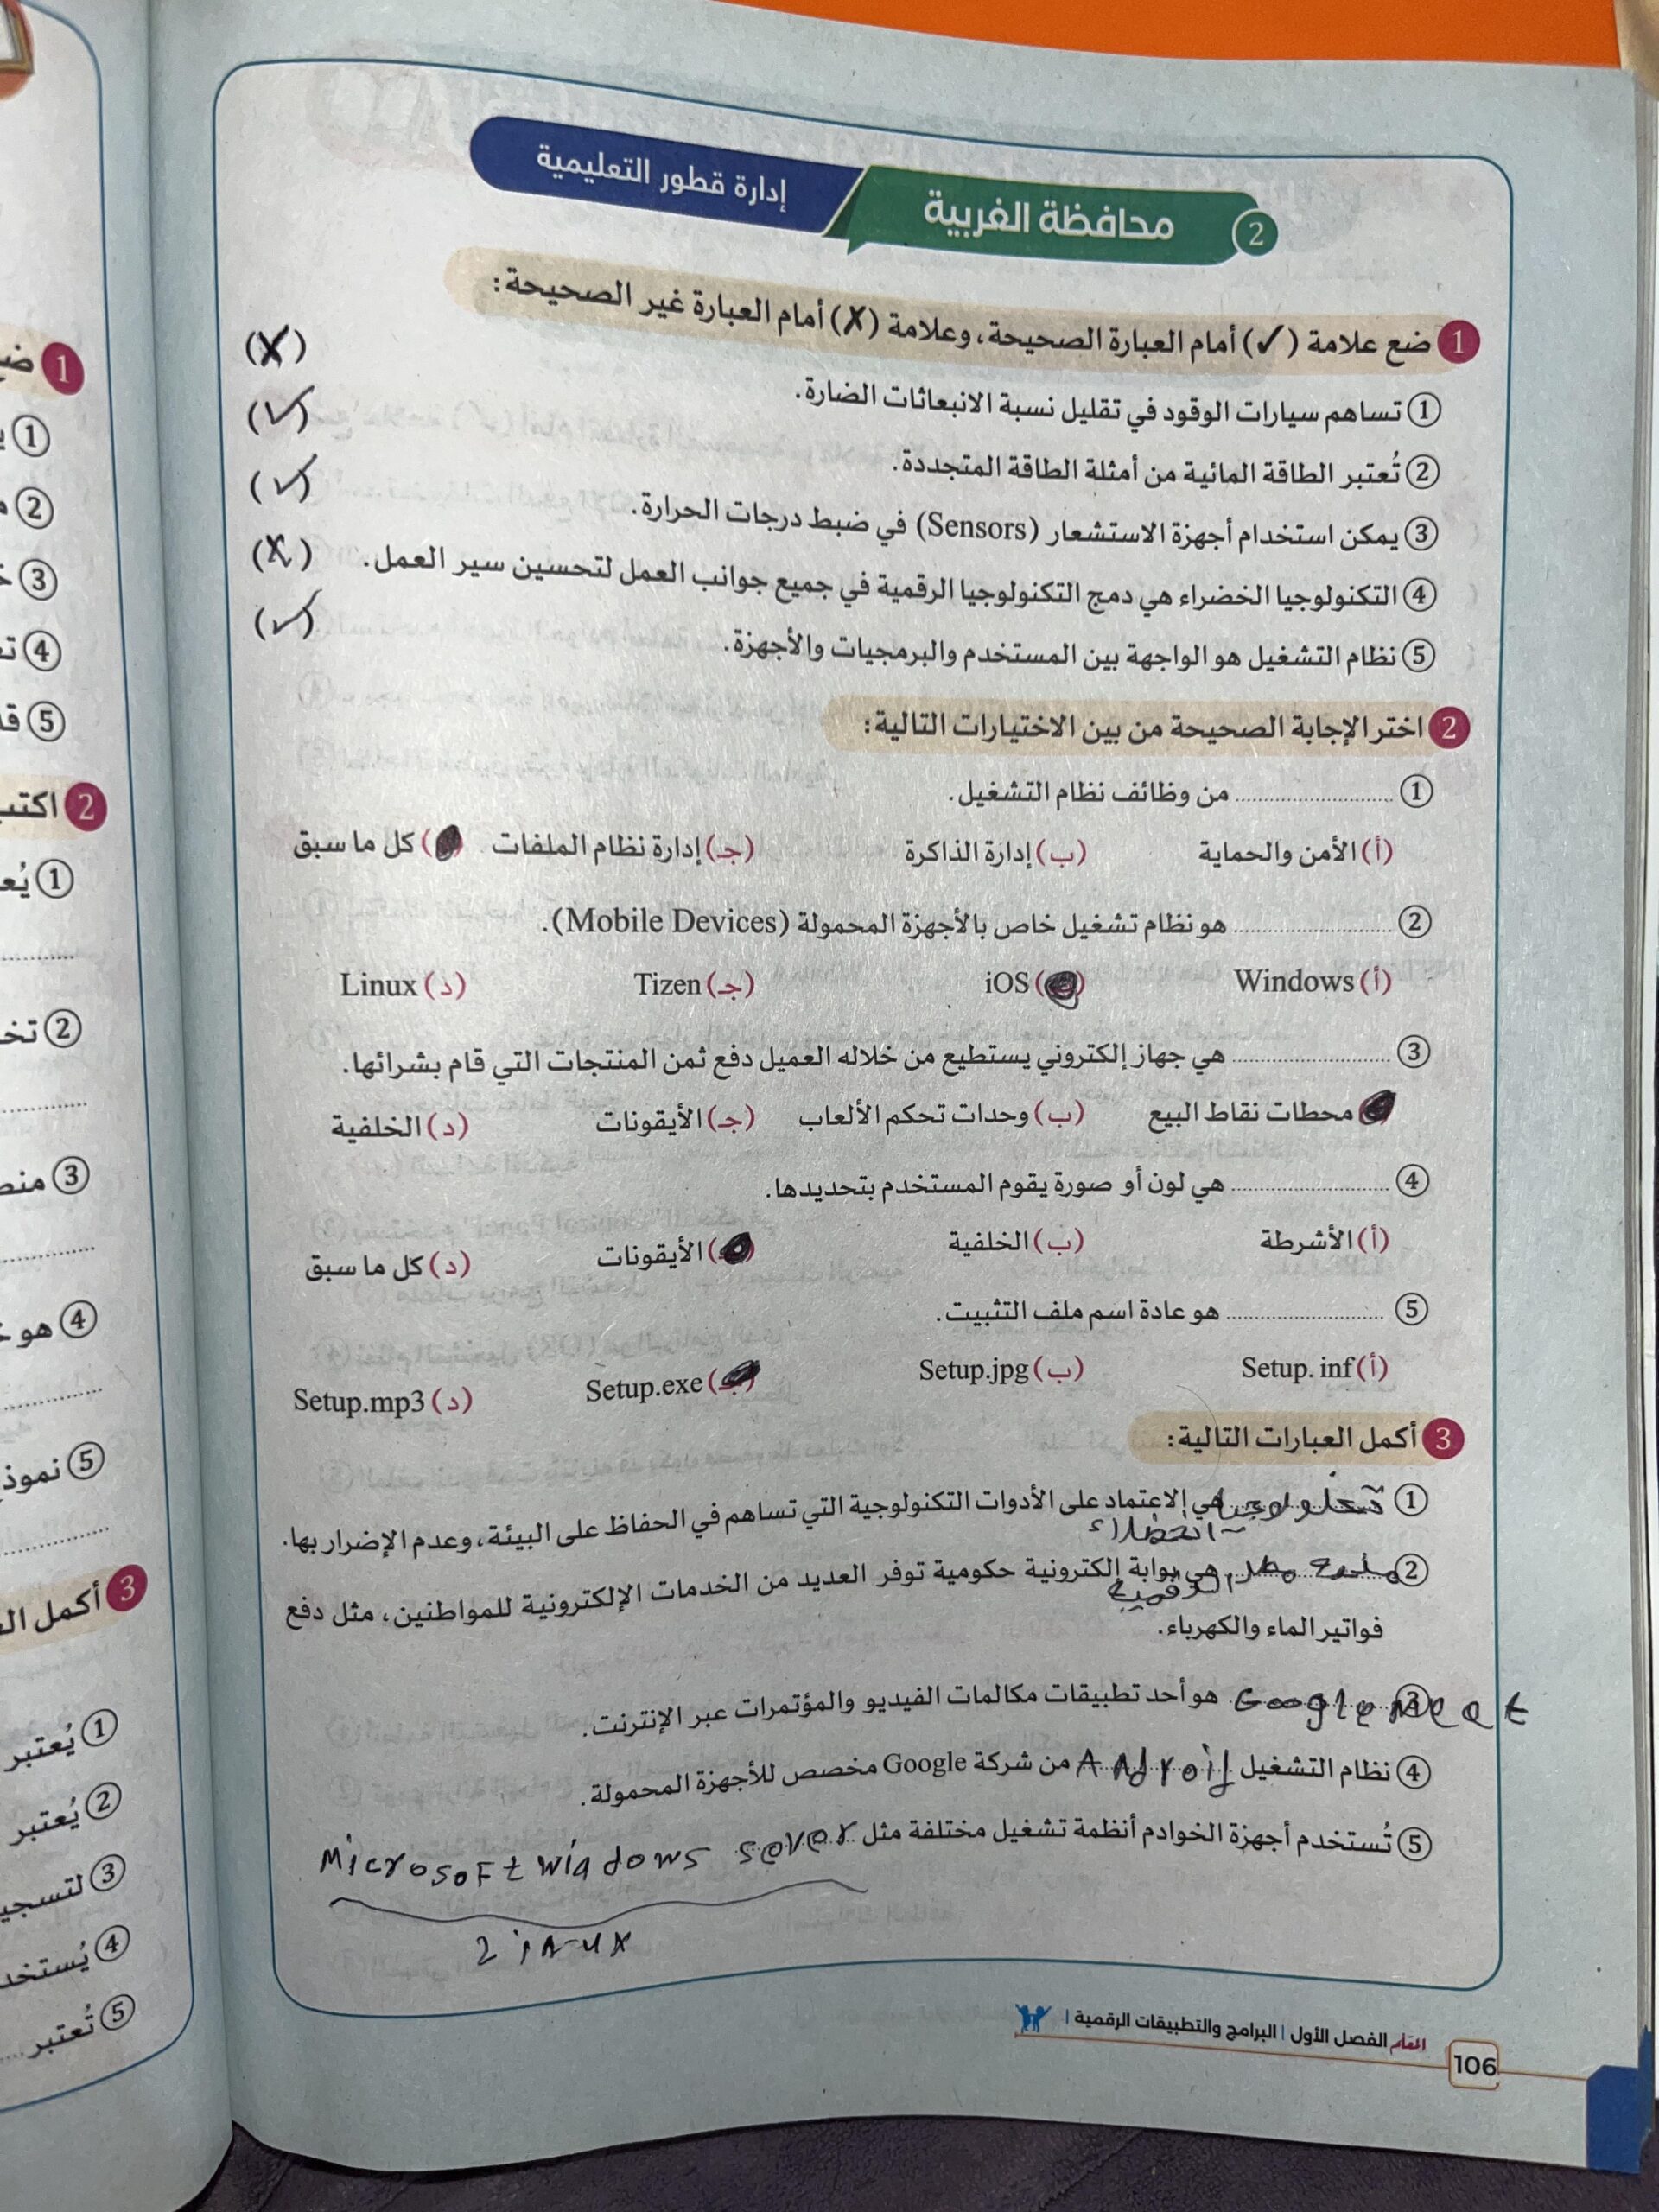 2 محافظة الغربية إدارة قطور التعليمية
1 ضع علامة (✓) أمام العبارة الصحيحة، وعلامة (✗) أمام العبارة غير الصحيحة:
① تساهم سيارات الوقود في تقليل نسبة الانبعاثات الضارة. (✗)
② تُعتبر الطاقة المائية من أمثلة الطاقة المتجددة. (✓)
③ يمكن استخدام أجهزة الاستشعار (Sensors) في ضبط درجات الحرارة. (✓)
④ التكنولوجيا الخضراء هي دمج التكنولوجيا الرقمية في جميع جوانب العمل لتحسين سير العمل. (✗)
⑤ نظام التشغيل هو الواجهة بين المستخدم والبرمجيات والأجهزة. (✓)
2 اختر الإجابة الصحيحة من بين الاختيارات التالية:
① .......................... من وظائف نظام التشغيل.
(أ) الأمن والحماية (ب) إدارة الذاكرة (جـ) إدارة نظام الملفات ( ) كل ما سبق
② .......................... هو نظام تشغيل خاص بالأجهزة المحمولة (Mobile Devices).
(أ) Windows ( ) iOS (جـ) Tizen (د) Linux
③ .......................... هي جهاز إلكتروني يستطيع من خلاله العميل دفع ثمن المنتجات التي قام بشرائها.
محطات نقاط البيع (ب) وحدات تحكم الألعاب (جـ) الأيقونات (د) الخلفية
④ .......................... هي لون أو صورة يقوم المستخدم بتحديدها.
(أ) الأشرطة (ب) الخلفية ( ) الأيقونات (د) كل ما سبق
⑤ .......................... هو عادة اسم ملف التثبيت.
(أ) Setup. inf (ب) Setup.jpg ( ) Setup.exe (د) Setup.mp3
3 أكمل العبارات التالية:
① هي الاعتماد على الأدوات التكنولوجية التي تساهم في الحفاظ على البيئة، وعدم الإضرار بها.
② مصر الرقمية هي بوابة إلكترونية حكومية توفر العديد من الخدمات الإلكترونية للمواطنين، مثل دفع
فواتير الماء والكهرباء.
③ Google Meat هو أحد تطبيقات مكالمات الفيديو والمؤتمرات عبر الإنترنت.
④ نظام التشغيل Android من شركة Google مخصص للأجهزة المحمولة.
⑤ تُستخدم أجهزة الخوادم أنظمة تشغيل مختلفة مثل
Microsoft windows server
المعلم الفصل الأول | البرامج والتطبيقات الرقمية |
106
1 ضع
①
②
③
④
⑤
2
①
②
③
④ هو
⑤
3
① يُعتبر
② يُعتبر
③
④
⑤ تُعتبر